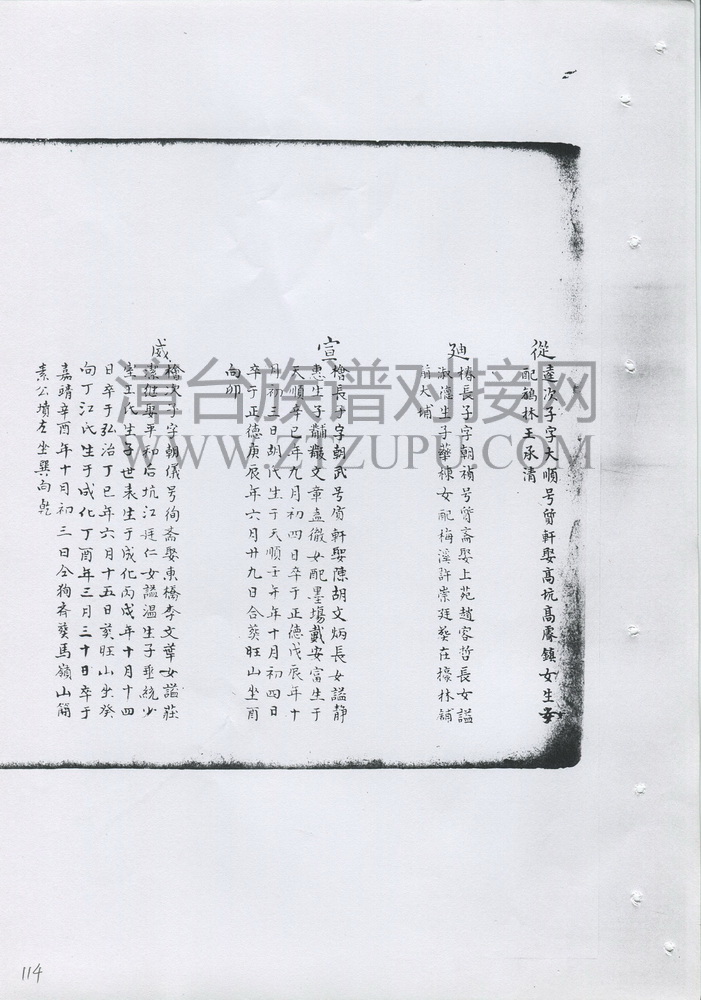 從
遠次子字大順号質軒娶高坑高㕓鎮女生女
配鶴林王承清
廸
椿長子字朝禎号質斋娶上苑趙容哲長女謚
淑德生子華棟女配梅溪許崇廷葵在檺林舖
前大埔
宣
檜長子字朝武号質軒娶陳胡文炳長女謚静
惠生子黼黻文章孟徽女配墨塲戴安富生于
天順辛巳年九月初四日卒于正德戊辰年十
月初三日胡氏生于天順壬午年十月初四日
卒于正德庚辰年六月廿九日合葵旺山坐酉
向卯
威
檜次子字朝儀号徇斋娶東橋李文華女謚莊
遠继娶平和后坑江廷仁女謚温生子垂統少
室王氏生子世表生于成化丙戌年十月十四
日卒于弘治丁巳年六月十五日葵旺山坐癸
向丁江氏生于成化丁酉年三月三十日卒于
嘉晴辛酉年十月初三日仝狥斋葵馬嶺山简
素公墳左坐巽向乾
114
漳台族谱对接网
WWW.ZTZUPU.COM